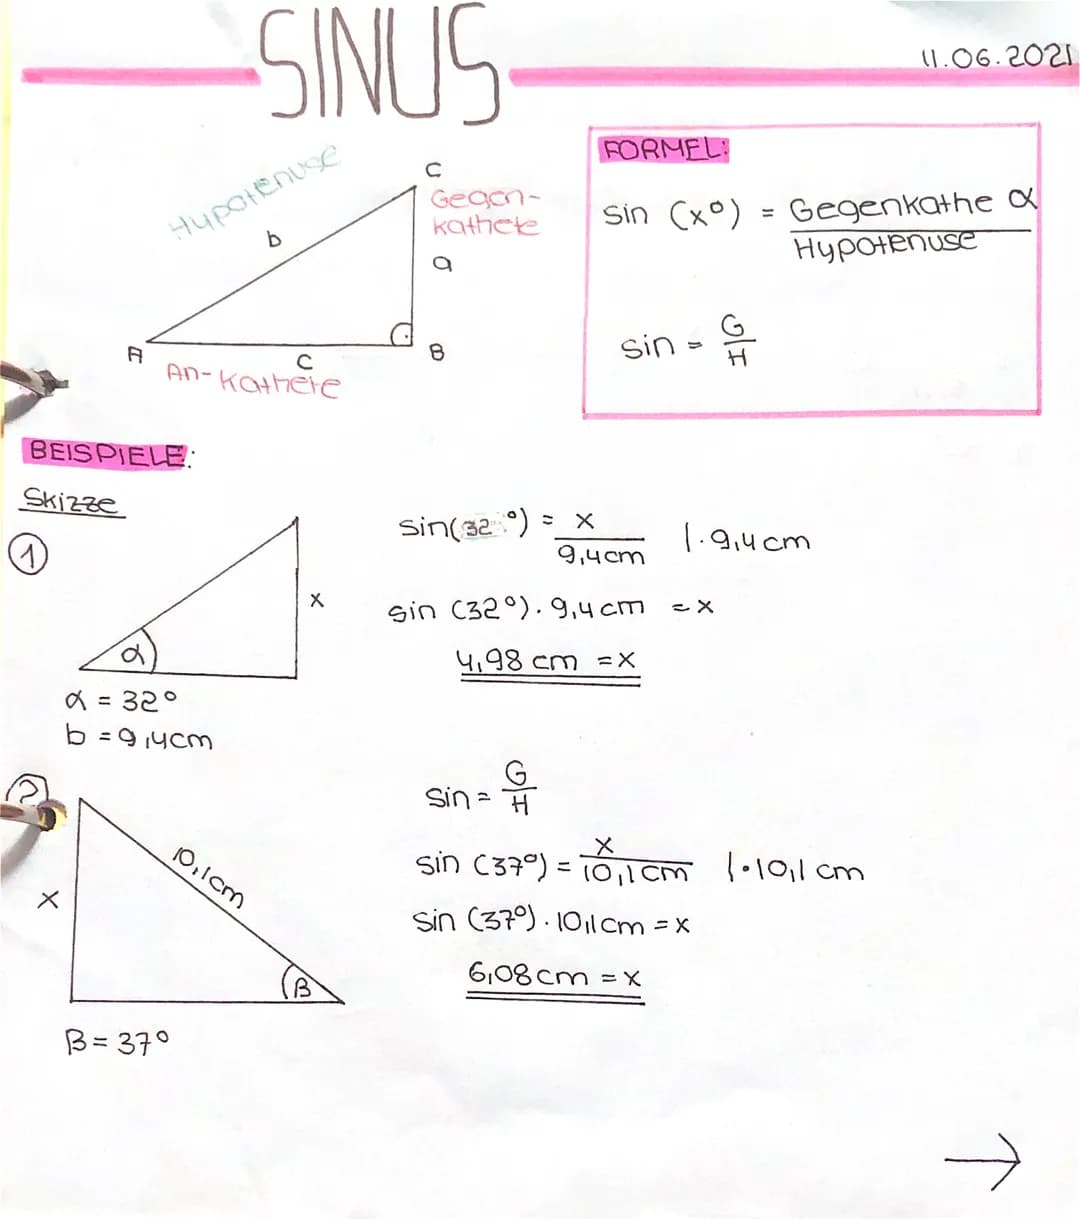 SINUS
11.06.2021
Hypotenuse
b
C
Gegen-
kathete
a
A
c
B
An-kathete
FORMEL:
sin (x°) = Gegenkathe α
Hypotenuse
sin = G
H
BEISPIELE:
Skizze
①
x
α
α = 32°
b = 9,4cm
sin(32°) = x
9,4cm
|·9,4cm
sin (32°)·9,4cm = x
4,98 cm = x
②
10,1cm
x
β
β = 37°
sin = G
H
sin (37°) = x
10,1cm
|·10,1 cm
sin (37°)·10,1cm = x
6,08cm = x
→